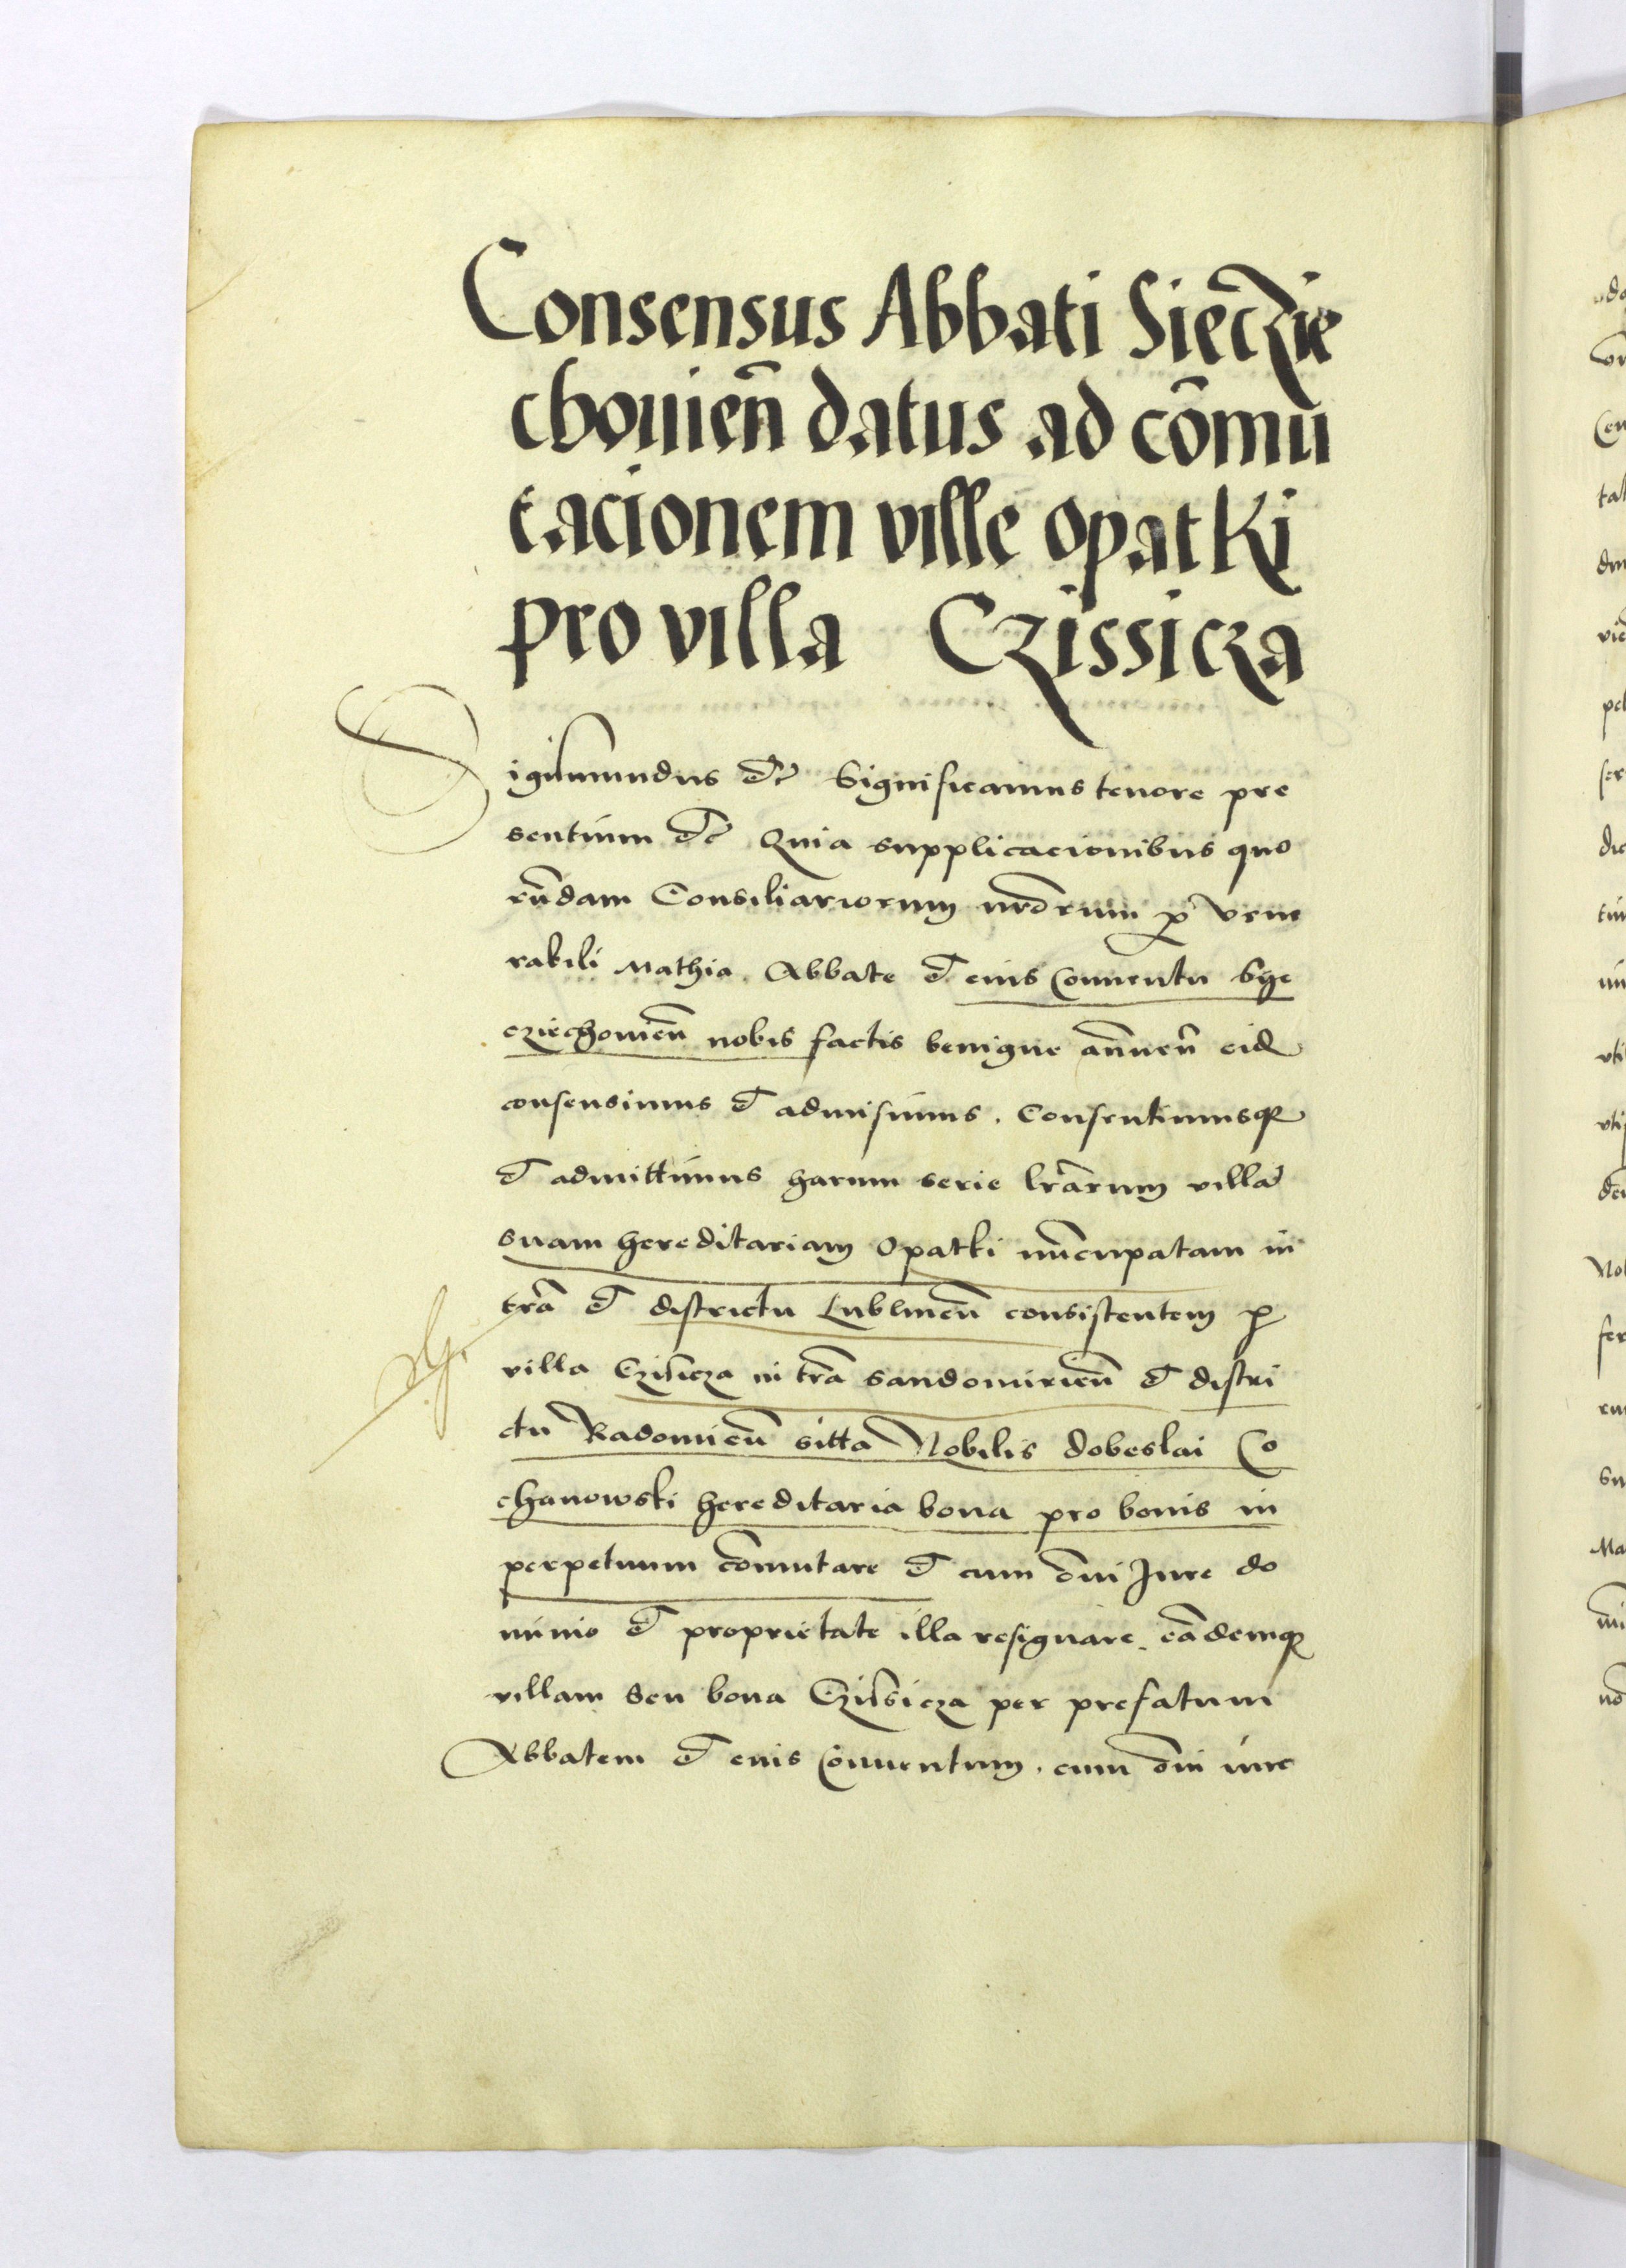 Consensus Abbati Sieczie
chouien̄ datus ad cōmu
tacionem ville Opatki
pro villa Czissicza
Sigismundus etc̄ Significamus tenore pre
sentium etc̄ Quia supplicacionibus quo
rūdam Consiliariorum nr̄orum p Vene
rabili Mathia Abbate et eius Conuentu Sye
cziechouien̄ nobis factis benigne ānuen̄ eidē
consensimus et admisimus. Consentimusqꝫ
et admittimus harum serie lr̄arum villā
suam hereditariam Opatki nūcupatam in
tr̄a et districtu Lublinen̄ consistentem p
villa Czissicza in tr̄a Sandomirien̄ et distri
ctu Radomien̄ sitta Nobilis Dobeslai Co
chanowski hereditaria bona pro bonis in
perpetuum cōmutare et cum om̄i Jure do
minio et proprietate illa resignare. eādemqꝫ
villam seu bona Czissicza per prefatum
Abbatem et eius Conuentum. cum om̄i iure